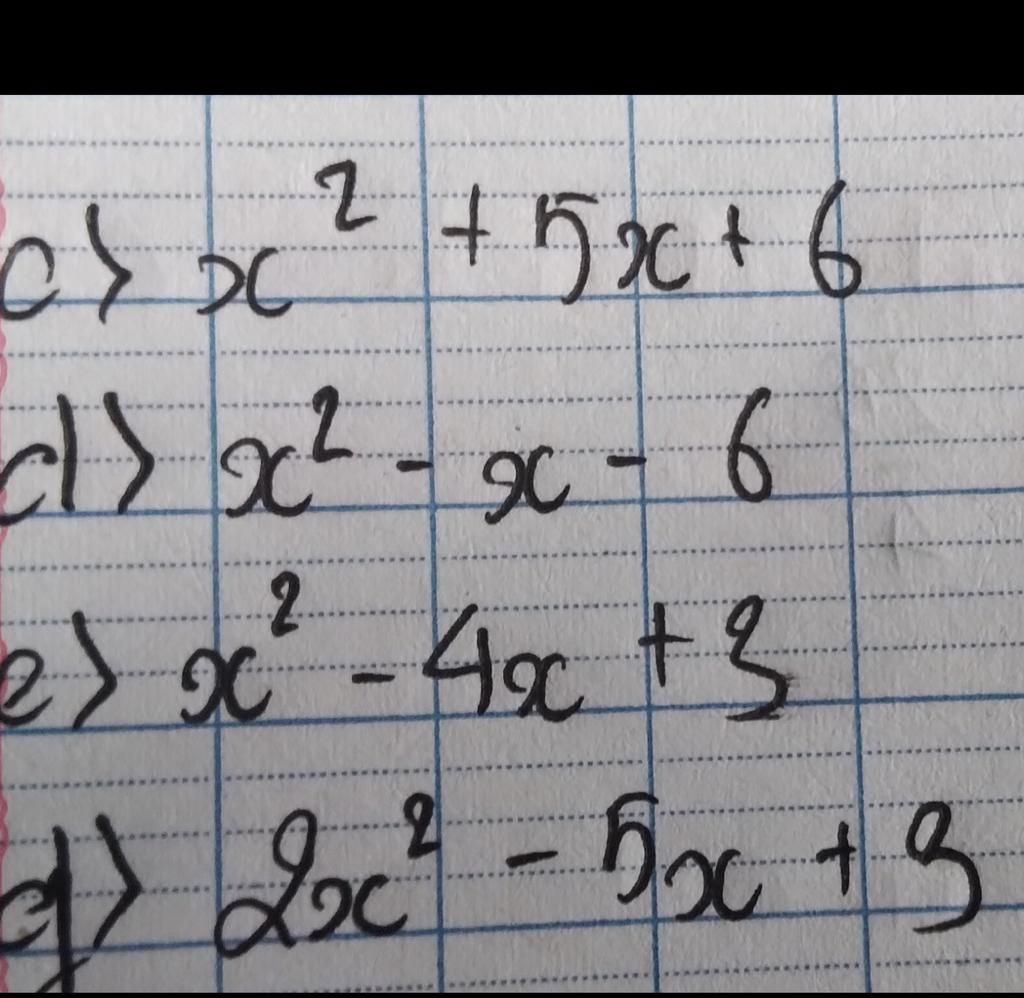 c) x² + 5x + 6
d) x² - x - 6
e) x² - 4x + 3
g) 2x² - 5x + 3